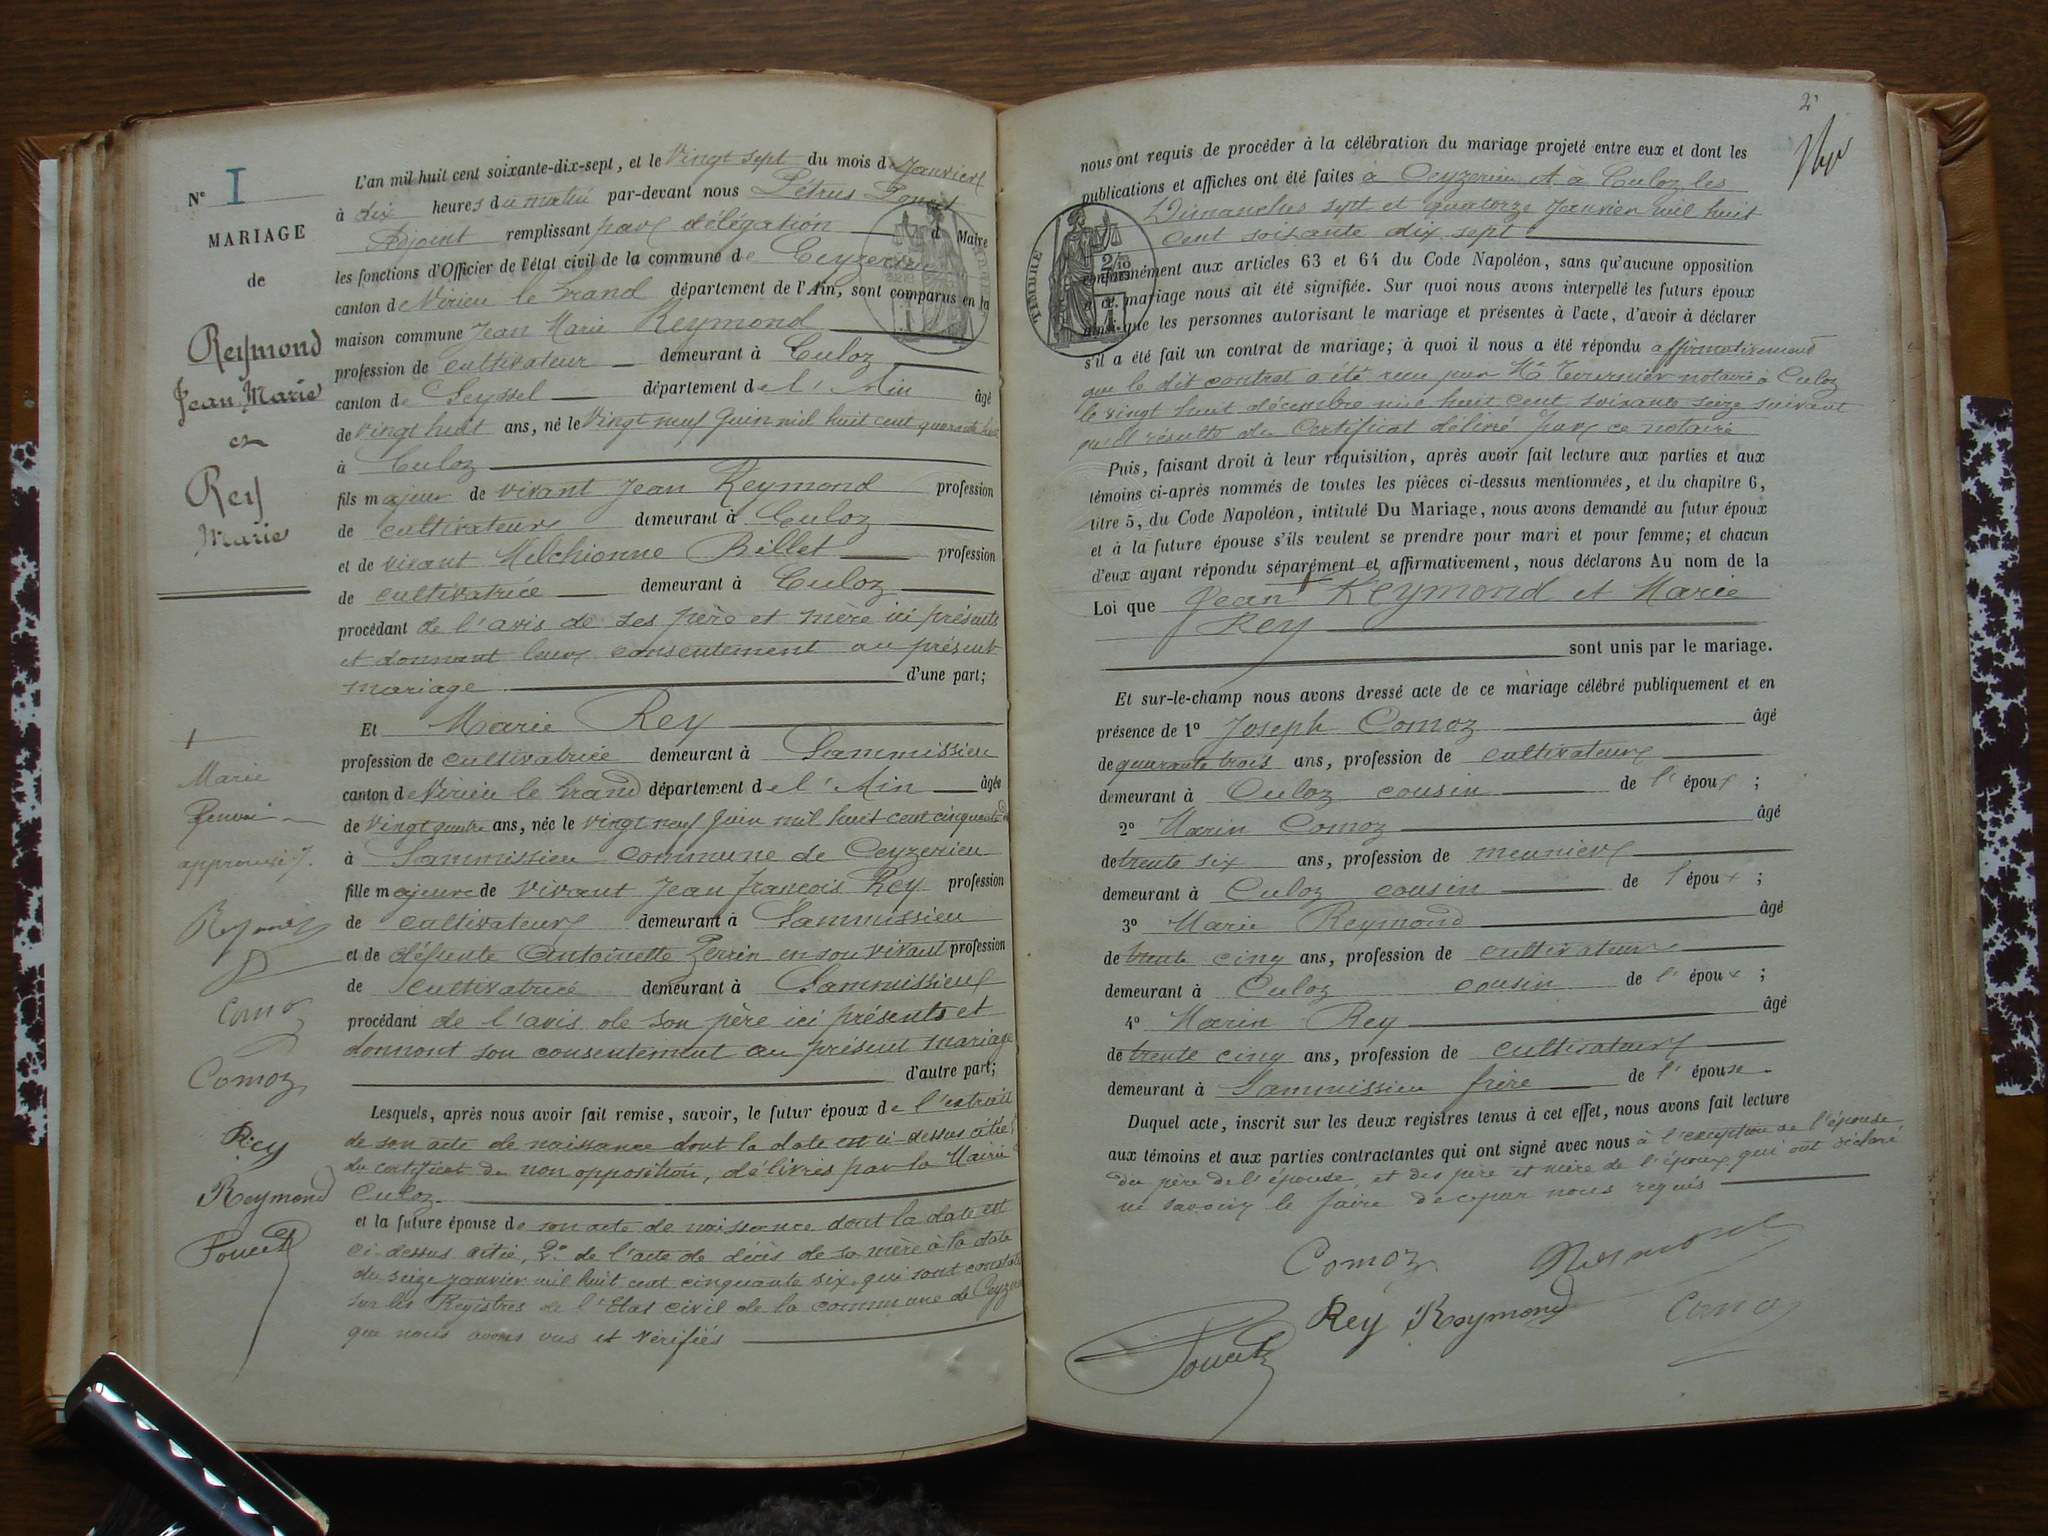 N° I
MARIAGE
de
Reymond
Jean Marie
et
Rey
Marie
L'an mil huit cent soixante-dix-sept, et le Vingt sept du mois de Janvier
à dix heures du matin par-devant nous Pétrus Poncet
Adjoint remplissant par délégation d Maire
les fonctions d'Officier de l'état civil de la commune de Ceyzerieu
canton de Virieu le Grand département de l'Ain, sont comparus en la
maison commune Jean Marie Reymond
profession de cultivateur demeurant à Culoz
canton de Seyssel département de l'Ain âgé
de vingt huit ans, né le Vingt neuf Juin mil huit cent quarante huit
à Culoz
fils majeur de vivant Jean Reymond profession
de cultivateur demeurant à Culoz
et de vivant Melchionne Billet profession
de cultivatrice demeurant à Culoz
procédant de l'avis de ses père et mère ici présents
et donnant leur consentement au présent
mariage d'une part;
Et Marie Rey
profession de cultivatrice demeurant à Sammissieu
canton de Virieu le Grand département de l'Ain âgée
de Vingt quatre ans, née le vingt neuf Juin mil huit cent cinquante
à Sammissieu commune de Ceyzerieu
fille majeure de vivant Jean François Rey profession
de cultivateur demeurant à Sammissieu
et de défunte Antoinette Perrin en son vivant profession
de cultivatrice demeurant à Sammissieu
procédant de l'avis de son père ici présents et
donnant son consentement au présent mariage
d'autre part;
Lesquels, après nous avoir fait remise, savoir, le futur époux de l'extrait
de son acte de naissance dont la date est ci-dessus citée
du certificat de non opposition, délivrés par la Mairie
Culoz
et la future épouse de son acte de naissance dont la date est
ci-dessus citée, 2° de l'acte de décès de sa mère à la date
du seize janvier mil huit cent cinquante six, qui sont constatés
sur les Registres de l'Etat civil de la commune de Ceyzerieu
que nous avons vus et vérifiés
Marie
Renvoi
approuvé
Reymond
Comoz
Comoz
Rey
Reymond
Poncet
2
nous ont requis de procéder à la célébration du mariage projeté entre eux et dont les
publications et affiches ont été faites à Ceyzerieu et à Culoz les
Dimanches sept et quatorze Janvier mil huit
cent soixante dix sept
TIMBRE
2/10
conformément aux articles 63 et 64 du Code Napoléon, sans qu'aucune opposition
à ce mariage nous ait été signifiée. Sur quoi nous avons interpellé les futurs époux
ainsi que les personnes autorisant le mariage et présentes à l'acte, d'avoir à déclarer
s'il a été fait un contrat de mariage; à quoi il nous a été répondu affirmativement
que le dit contrat a été reçu par Me Tournier notaire à Culoz
le vingt huit décembre mil huit cent soixante seize suivant
qu'il résulte du Certificat délivré par ce notaire
Puis, faisant droit à leur réquisition, après avoir fait lecture aux parties et aux
témoins ci-après nommés de toutes les pièces ci-dessus mentionnées, et du chapitre 6,
titre 5, du Code Napoléon, intitulé Du Mariage, nous avons demandé au futur époux
et à la future épouse s'ils veulent se prendre pour mari et pour femme; et chacun
d'eux ayant répondu séparément et affirmativement, nous déclarons Au nom de la
Loi que Jean Reymond et Marie
Rey
sont unis par le mariage.
Et sur-le-champ nous avons dressé acte de ce mariage célébré publiquement et en
présence de 1° Joseph Comoz âgé
de quarante trois ans, profession de cultivateur
demeurant à Culoz cousin de l'époux ;
2° Marin Comoz âgé
de trente six ans, profession de meunier
demeurant à Culoz cousin de l'époux ;
3° Marie Reymond âgé
de trente cinq ans, profession de cultivateur
demeurant à Culoz cousin de l'époux ;
4° Marin Rey âgé
de trente cinq ans, profession de cultivateur
demeurant à Sammissieu frère de l'épouse.
Duquel acte, inscrit sur les deux registres tenus à cet effet, nous avons fait lecture
aux témoins et aux parties contractantes qui ont signé avec nous à l'exception de l'épouse
du père de l'épouse, et des père et mère de l'époux qui ont déclaré
ne savoir le faire de ce par nous requis
Comoz Reymond
Rey Reymond Comoz
Poncet